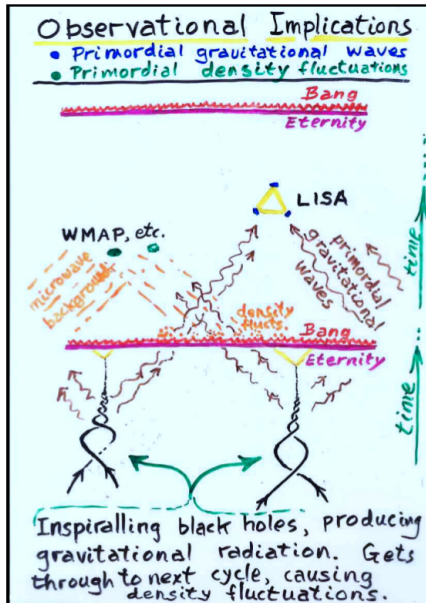 Observational Implications
• Primordial gravitational waves
• Primordial density fluctuations
Bang
Eternity
LISA
WMAP, etc.
microwave
background
primordial
gravitational
waves
time
density
flucts.
Bang
Eternity
time
Inspiralling black holes, producing
gravitational radiation. Gets
through to next cycle, causing
density fluctuations.